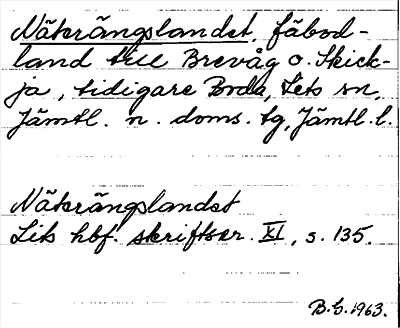 Näkrängslandet, fäbod-
land till Brevåg o. Skick-
ja, tidigare Boda, Lits sn,
Jämtl. n. doms. tg, Jämtl. l.
Näkrängslandet
Lits hbf. skriftser. XI, s. 135.
B.G. 1963.